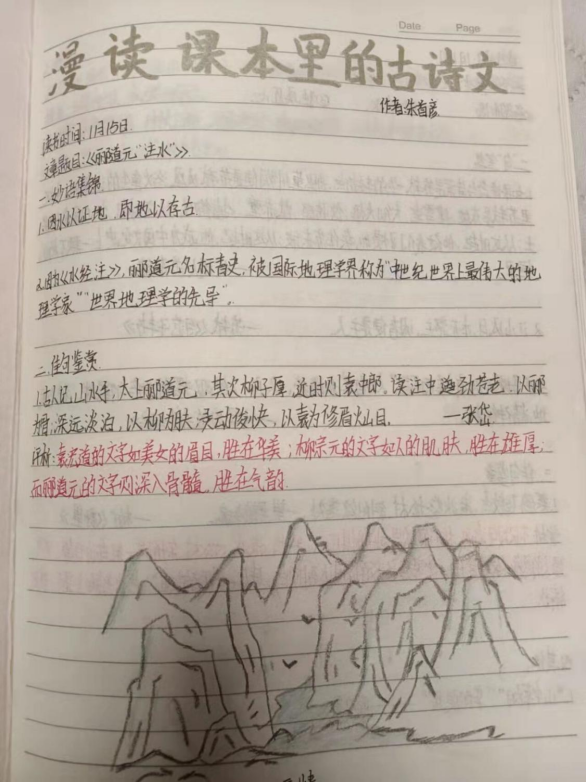 Date Page
漫读课本里的古诗文
作者:朱首彦
读书时间:11月15日
文章题目:《郦道元“注水”》
一.妙语集锦
1.因水以证地,即地以存古
2.因为《水经注》,郦道元名标青史,被国际地理学界称为“中世纪世界上最伟大的地
理学家”“世界地理学的先导”。
二.佳句鉴赏
1.古人记山水手,太上郦道元,其次柳子厚,近时则袁中郎。读注中遒劲苍老,以郦
为骨,深远淡泊,以柳为肤,灵动俊快,以袁为修眉灿目。 —张岱
评析:袁宏道的文字如美女的眉目,胜在华美;柳宗元的文字如人的肌肤,胜在雄厚,
而郦道元的文字则深入骨髓,胜在气韵